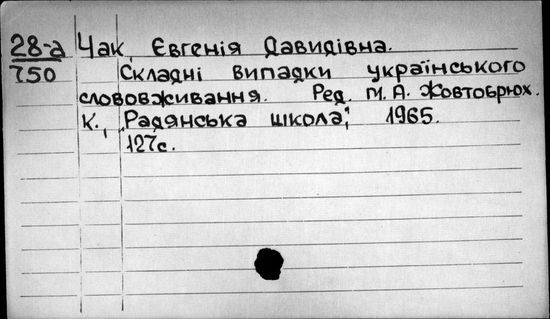 28-а Чак, Євгенія Давидівна.
750 Складні випадки українського
слововживання. Ред. М. А. Жовтобрюх.
К., „Радянська школа", 1965.
127с.